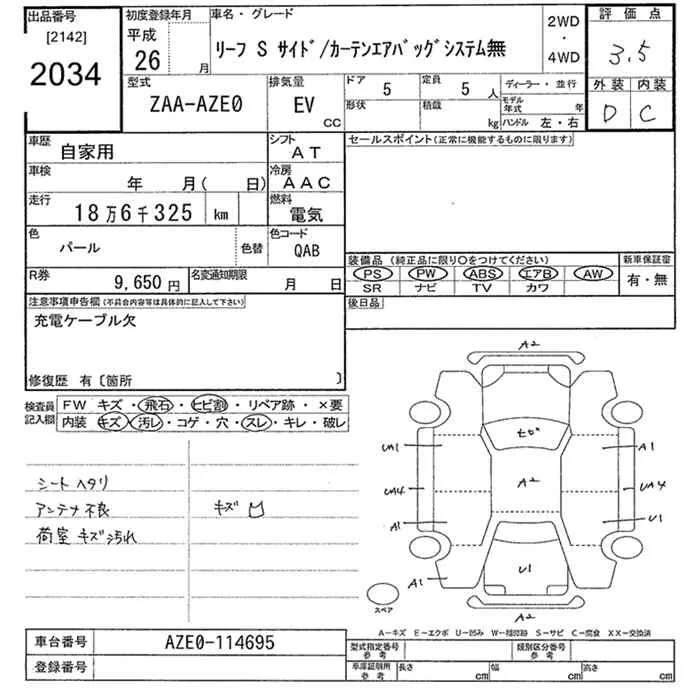 出品番号 初度登録年月 車名・グレード 2WD 評価点
[2142] 平成 リーフ S サイド/カーテンエアバッグシステム無 ・ 3.5
2034 26 月 4WD 外装 内装
型式 排気量 ドア 5 定員 5 人 ディーラー・並行 D C
ZAA-AZE0 EV CC 形状 積載 kg モデル年式 年
ハンドル 左・右
車歴 自家用 シフト AT セールスポイント(正常に機能するものに限ります)
車検 年 月( 日) 冷房 AAC
走行 18万6千325 km 燃料 電気
色 パール 色替 色コード QAB
装備品 (純正品に限り○をつけてください) 新車保証書
R券 9,650円 名変通知期限 月 日 PS PW ABS エアB AW 有・無
SR ナビ TV カワ
注意事項申告欄(不具合内容等は具体的に記入して下さい) 後日品
充電ケーブル欠
修復歴 有〔箇所 〕
検査員記入欄 FW キズ・飛石・ヒビ割・リペア跡・×要
内装 キズ・汚レ・コゲ・穴・スレ・キレ・破レ
シートヘタリ
アンテナ不良 キズ
荷室キズ汚れ
A2
ヒビ
UA1 A1
A2
UA4 UA4
A1 U1
U1
A1
A2
スペア
A-キズ E-エクボ U-凹み W-補修跡 S-サビ C-腐食 XX-交換済
車台番号 AZE0-114695 型式指定番号 参考 類別区分番号 参考
登録番号 車庫証明用 参考 長さ cm 幅 cm 高さ cm